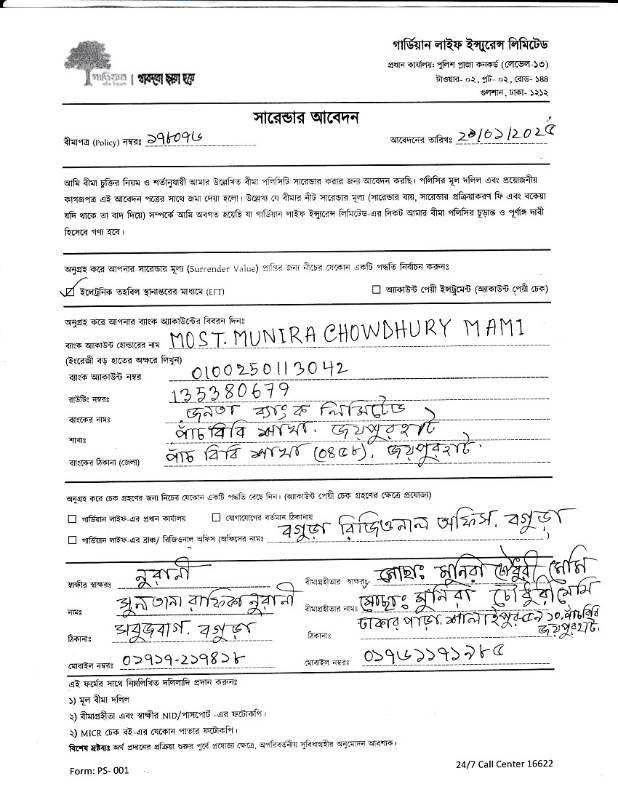 গার্ডিয়ান লাইফ ইন্স্যুরেন্স লিমিটেড
প্রধান কার্যালয়: পুলিশ প্লাজা কনকর্ড (লেভেল-১৩)
টাওয়ার- ০২, প্লট- ০২, রোড- ১৪৪
গুলশান, ঢাকা- ১২১২
গার্ডিয়ান | থাকবো ছায়া হয়ে
সারেন্ডার আবেদন
বীমাপত্র (Policy) নম্বরঃ ১৭৮০৭৬
আবেদনের তারিখঃ ২০/০১/২০২৫
আমি বীমা চুক্তির নিয়ম ও শর্তানুযায়ী আমার উল্লেখিত বীমা পলিসিটি সারেন্ডার করার জন্য আবেদন করছি। পলিসির মূল দলিল এবং প্রয়োজনীয়
কাগজপত্র এই আবেদন পত্রের সাথে জমা দেয়া হলো। উল্লেখ্য যে বীমার নীট সারেন্ডার মূল্য (সারেন্ডার ব্যয়, সারেন্ডার প্রক্রিয়াকরণ ফি এবং বকেয়া
যদি থাকে তা বাদ দিয়ে) সম্পর্কে আমি অবগত হয়েছি যা গার্ডিয়ান লাইফ ইন্স্যুরেন্স লিমিটেড-এর নিকট আমার বীমা পলিসির চূড়ান্ত ও পূর্ণাঙ্গ দাবী
হিসেবে গণ্য হবে।
অনুগ্রহ করে আপনার সারেন্ডার মূল্য (Surrender Value) প্রাপ্তির জন্য নীচের যেকোন একটি পদ্ধতি নির্বাচন করুনঃ
☑ ইলেট্রনিক তহবিল স্থানান্তরের মাধ্যমে (EFT) ☐ অ্যাকাউন্ট পেয়ী ইন্সট্রুমেন্ট (অ্যাকাউন্ট পেয়ী চেক)
অনুগ্রহ করে আপনার ব্যাংক অ্যাকাউন্টের বিবরন দিনঃ
ব্যাংক অ্যাকাউন্ট হোল্ডারের নাম MOST. MUNIRA CHOWDHURY MAMI
(ইংরেজী বড় হাতের অক্ষরে লিখুন)
ব্যাংক অ্যাকাউন্ট নম্বর 0100250113042
রাউটিং নম্বরঃ 135380679
ব্যাংকের নামঃ জনতা ব্যাংক লিমিটেড
শাখাঃ পাঁচবিবি শাখা. জয়পুরহাট
ব্যাংকের ঠিকানা (জেলা) পাঁচ বিবি শাখা (০৪৫৮), জয়পুরহাট.
অনুগ্রহ করে চেক গ্রহণের জন্য নিচের যেকোন একটি পদ্ধতি বেছে নিন। (অ্যাকাউন্ট পেয়ী চেক গ্রহণের ক্ষেত্রে প্রযোজ্য)
☐ গার্ডিয়ান লাইফ-এর প্রধান কার্যালয় ☐ যোগাযোগের বর্তমান ঠিকানায়
☐ গার্ডিয়ান লাইফ-এর ব্রাঞ্চ/ রিজিওনাল অফিস (অফিসের নামঃ বগুড়া রিজিওনাল অফিস. বগুড়া
স্বাক্ষীর স্বাক্ষরঃ নুরানী
বীমাগ্রহীতার স্বাক্ষরঃ মোছাঃ মুনিরা চৌধুরী মেমি
নামঃ সুলতানা রাফিকা নুরানী
বীমাগ্রহীতার নামঃ মোছাঃ মুনিরা চৌধুরী মেমি
ঠিকানাঃ সবুজবাগ. বগুড়া
ঠিকানাঃ ঢাকারপাড়া. শালাইপুর পাঁচবিবি জয়পুরহাট.
মোবাইল নম্বরঃ ০১৭১৭-২১৭৪১৮
মোবাইল নম্বরঃ ০১৭৬১১৭১৯৮৫
এই ফর্মের সাথে নিম্নলিখিত দলিলাদি প্রদান করুনঃ
১) মূল বীমা দলিল
২) বীমাগ্রহীতা এবং স্বাক্ষীর NID/পাসপোর্ট -এর ফটোকপি।
২) MICR চেক বই-এর যেকোন পাতার ফটোকপি।
বিশেষ দ্রষ্টব্যঃ অর্থ প্রদানের প্রক্রিয়া শুরুর পূর্বে প্রযোজ্য ক্ষেত্রে, অপরিবর্তনীয় সুবিধাগ্রহীর অনুমোদন আবশ্যক।
Form: PS- 001
24/7 Call Center 16622